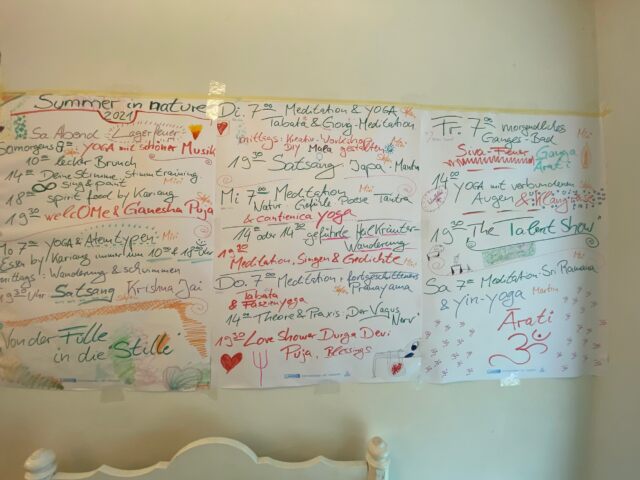 Summer in nature
2021
Sa Abend Lagerfeuer
So morgens 8⁰⁰ YOGA mit schöner Musik
10⁰⁰ lecker Brunch
14⁰⁰ Deine Stimme, Stimmtraining
sing & paint
18⁰⁰ spirit food by Kariang
19³⁰ welcOMe & Ganesha Puja
Mo 7⁰⁰ YOGA & Atemtypen
Essen by Kariang immer um 10⁰⁰ & 18⁰⁰ Uhr
mittags: Wanderung & schwimmen
19³⁰ Uhr Satsang Krishna Jai
Von der Fülle
in die Stille
Di. 7⁰⁰ Meditation & YOGA
Tabata & Gong-Meditation
mittags: Kreativ-Workshop
DIY Mala gestalten
19³⁰ Satsang Japa - Mantra
Mi 7⁰⁰ Meditation
Natur Gefühle Poesie Tantra
& cantienica yoga
14⁰⁰ oder 14³⁰ geführte Kräuter-
Wanderung
19³⁰ Meditation, Singen & Gedichte
Do. 7⁰⁰ Meditation & fortgeschrittenes
Pranayama
Tabata
& Faszienyoga
14⁰⁰ Theorie & Praxis "Der Vagus
Nerv"
19³⁰ Love Shower Durga Devi
Puja, Blessings
Fr. 7⁰⁰ morgendliches
Ganges-Bad
Siva-Feuer
Ganga
Arati
14⁰⁰ YOGA mit verbundenen
Augen & Klang
19³⁰ "The Talent Show"
Sa 7⁰⁰ Meditation: Sri Ramana
& Yin-Yoga Martin
Arati
ॐ